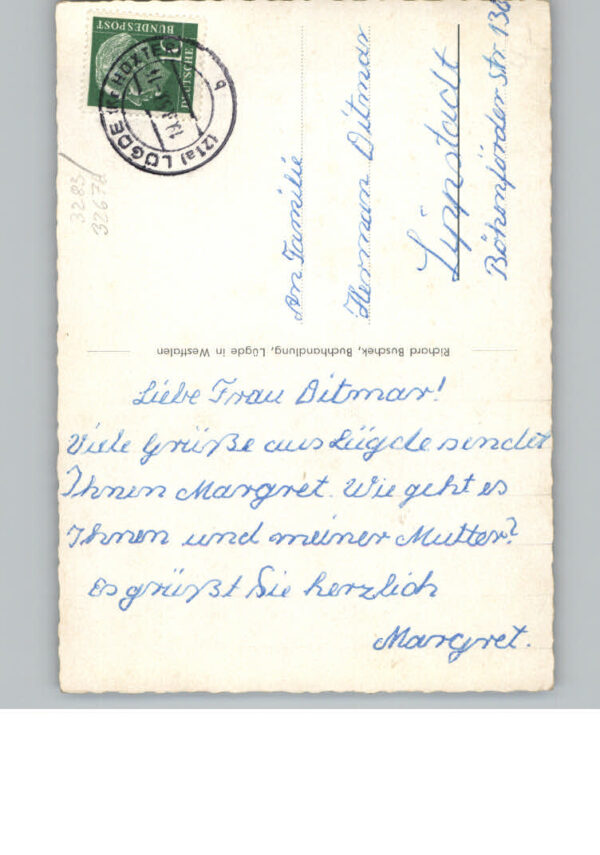 Liebe Frau Ditmar!
Viele Grüße aus Lügde sendet
Ihnen Margret. Wie geht es
Ihnen und meiner Mutter?
Es grüßt Sie herzlich
Margret.
Richard Buschek, Buchhandlung, Lügde in Westfalen
An Familie
Herman Ditmar
Lippstadt
Böhenförder Str.
DEUTSCHE
BUNDESPOST
(21a) LÜGDE (KR HÖXTER)
3283/
3267a